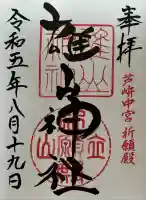 奉拝
芦峅中宮 祈願殿
雄山神社
令和五年八月十九日